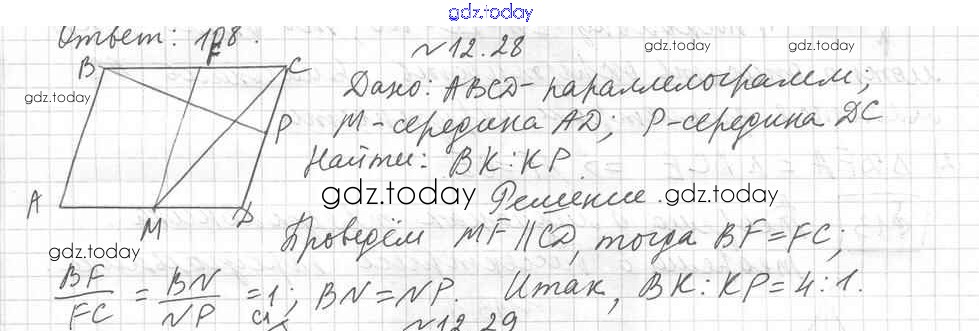 gdz.today
Ответ: 108.
№12.28
gdz.today
gdz.today
B F C
Дано: ABCD-параллелограмм;
gdz.today
P
M-середина AD; P-середина DC
Найти: BK:KP.
gdz.today
Решение.
gdz.today
A M D
Проведём MF||CD, тогда BF=FC;
gdz.today
BF/FC = BN/NP = 1; BN=NP. Итак, BK:KP=4:1.
№12.29